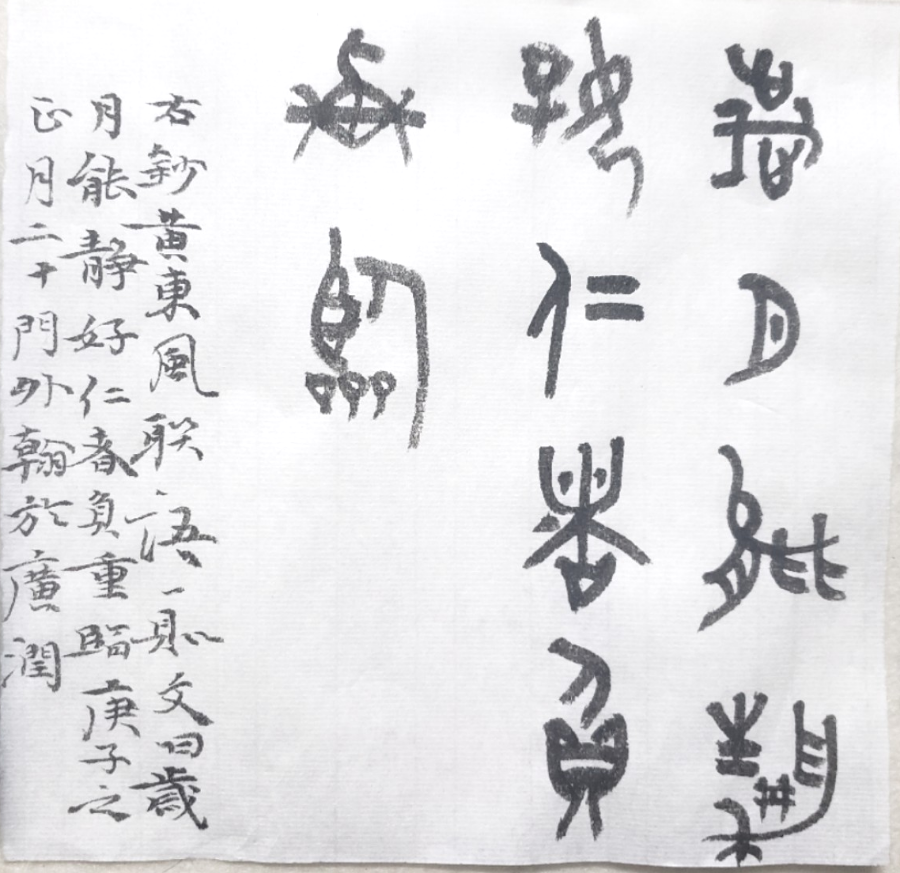 歲月能靜
好仁者負
重臨
右鈔黃東風联語一則文曰歲
月能靜好仁者負重臨庚子之
正月二十門外翰於廣潤